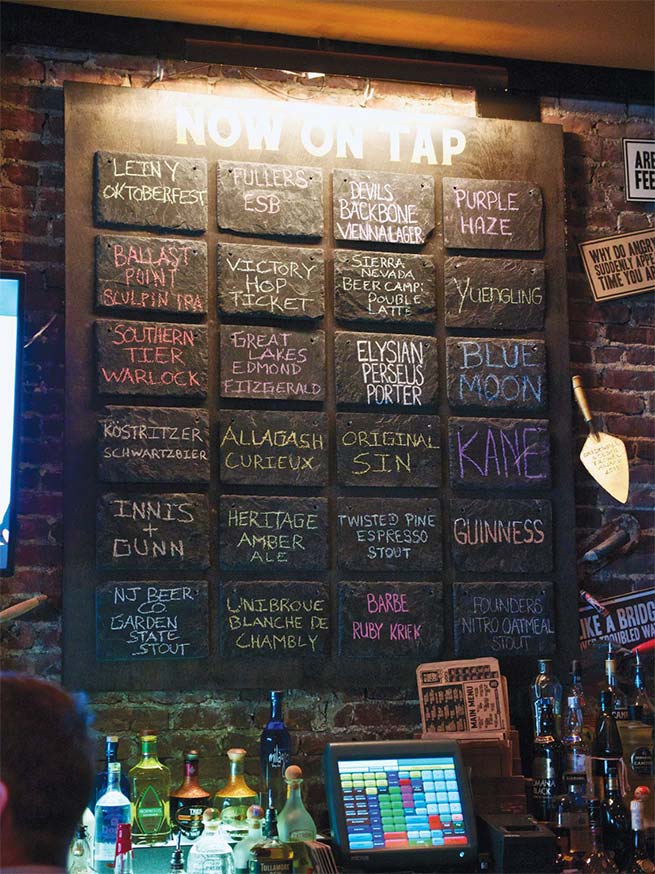 NOW ON TAP
LEINY
OKTOBERFEST
FULLERS
ESB
DEVILS
BACKBONE
VIENNA LAGER
PURPLE
HAZE
BALLAST
POINT
SCULPIN IPA
VICTORY
HOP
TICKET
SIERRA
NEVADA
BEER CAMP:
DOUBLE
LATTE
YUENGLING
SOUTHERN
TIER
WARLOCK
GREAT
LAKES
EDMOND
FITZGERALD
ELYSIAN
PERSEUS
PORTER
BLUE
MOON
KÖSTRITZER
SCHWARTZBIER
ALLAGASH
CURIEUX
ORIGINAL
SIN
KANE
INNIS
+
GUNN
HERITAGE
AMBER
ALE
TWISTED PINE
ESPRESSO
STOUT
GUINNESS
NJ BEER
CO
GARDEN
STATE
STOUT
UNIBROUE
BLANCHE DE
CHAMBLY
BARBE
RUBY KRIEK
FOUNDERS
NITRO OATMEAL
STOUT
ARE
FEE
WHY DO ANGRY
SUDDENLY APPE
TIME YOU AR
KE A BRIDG
ER TROUBLED WAT
MAIN MENU
TULLAMORE